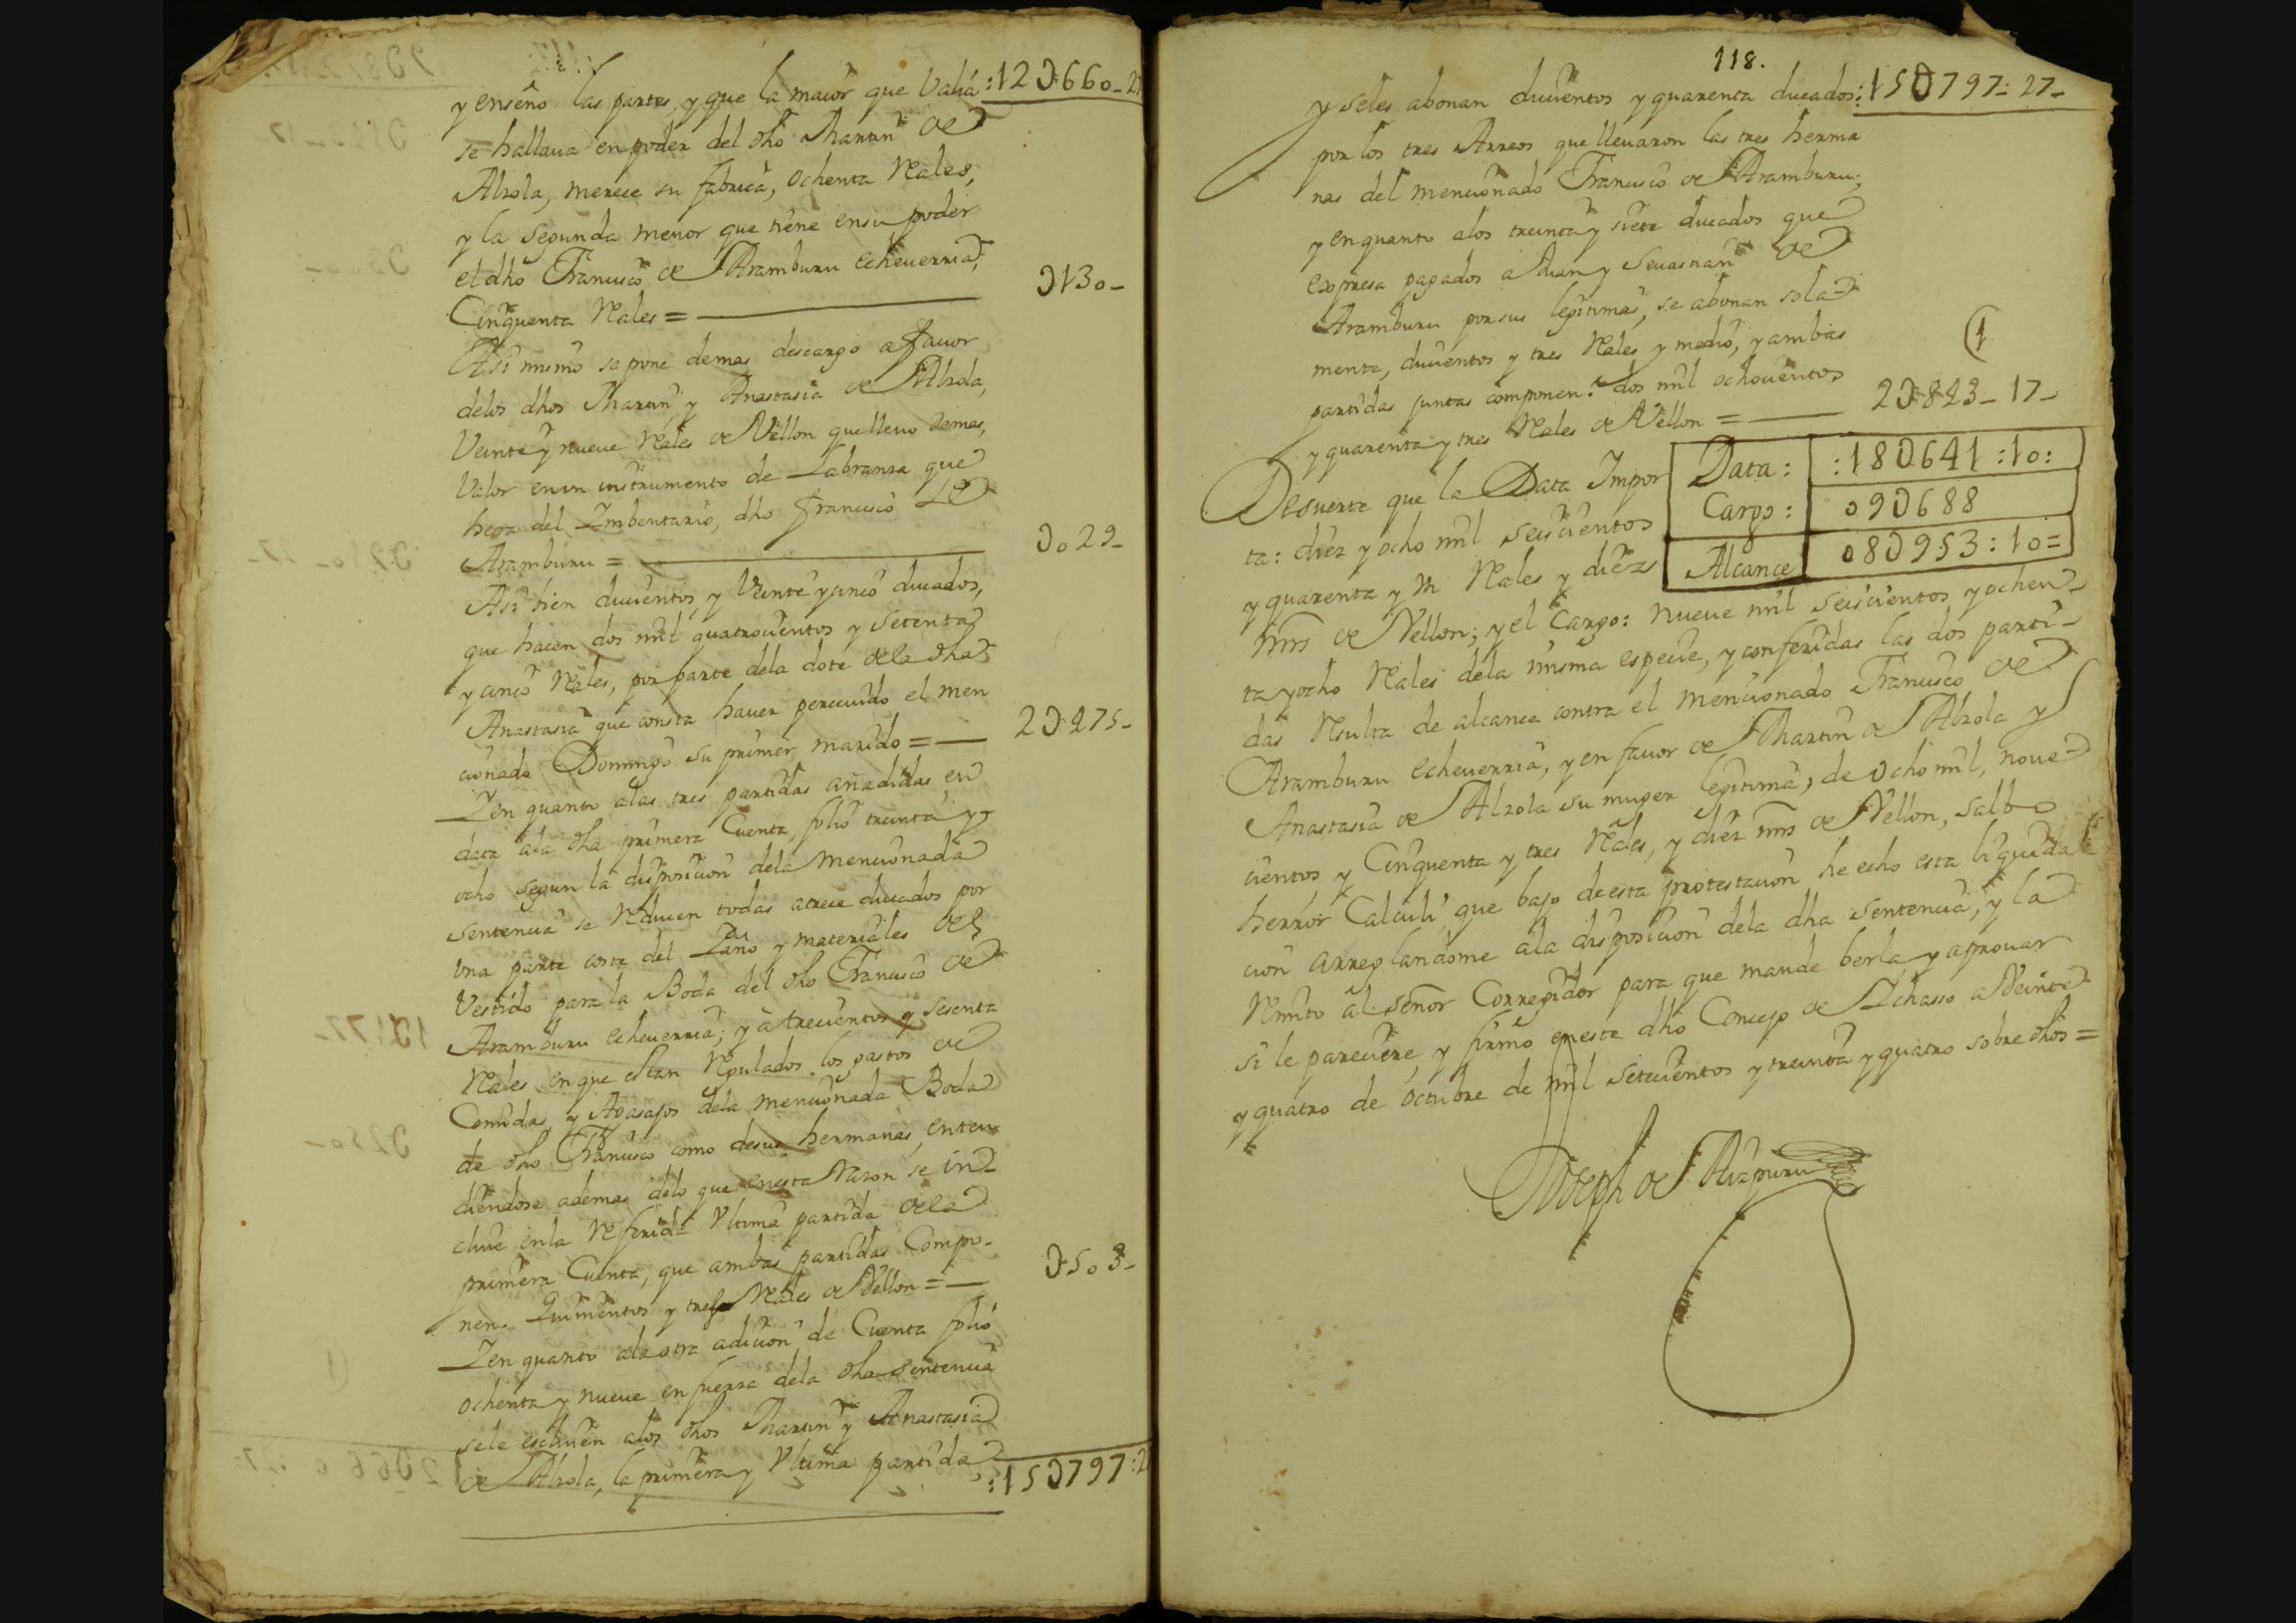 y enseño las partes, y que la maior que Valia :12U660-27
se hallaua en poder del dho Martin de
Alzola, mereze su fabrica, ochenta Reales,
y la segunda menor que tiene en su poder
el dho Francisco de Aramburu echeuerria,
Cinquenta Reales = U130-
Assi mismo se pone demas descargo a fauor
delos dhos Martin, y Anastasia de Alzola,
Veinte y nueue Reales de Vellon que lleuo demas,
Valor en un instrumento de Labranza que
hera del Imbentario, dho Francisco de
Aramburu = U029-
Assi bien ducientos, y Veinte y cinco ducados,
que hacen dos mil quatrocientos y setenta
y cinco Reales, por parte dela dote dela dha
Anastasia que consta hauer perceuido el men
cionado Domingo su primer marido = 2U475-
Y en quanto alas tres partidas añadidas en
data ala dha primera Cuenta, folio treinta y
ocho segun la disposicion dela mencionada
sentencia se Reducen todas atrece ducados por
una parte coste del Paño y materiales del
Vestido para la Boda del dho Francisco de
Aramburu echeuerria; y a trecientos y sesenta
Reales en que estan Regulados los gastos de
Comidas, y Agasajos dela mencionada Boda
de dho Francisco como desus hermanas, enten
diendose ademas delo que enesta razon se in
cluie enla Referida Vltima partida dela
primera Cuenta, que ambas partidas Compo-
nen. Quinientos y tres Reales de Vellon = U503-
Y en quanto ala otra adicion de Cuenta folio
ochenta y nueue en fuerza dela dha sentencia
sele escluien alos dhos Martin y Anastasia
de Alzola, la primera y Vltima partida
:15U797:2
118.
y seles abonan ducientos y quarenta ducados :15U797:27-
por los tres Arreos que lleuaron las tres herma
nas del mencionado Francisco de Aramburu;
y en quanto alos treinta y siete ducados que
expresa pagados a Juan y Seuastian de
Aramburu por sus legitimas, se abonan sola
mente, ducientos y tres Reales y medio, y ambas
partidas juntas componen. dos mil ochocientos
(1
y quarenta y tres Reales de Vellon = 2U843-17-
Desuerte que la Data Impor
ta: diez y ocho mil seiscientos
y quarenta y un Reales y diez
Data: :18U641:10:
Cargo: 09U688
Alcance 08U953:10=
mrs de Vellon; y el Cargo: nueue mil seiscientos y ochen
ta y ocho Reales dela misma especie, y conferidas las dos parti-
das Resulta de alcance contra el mencionado Francisco de
Aramburu echeuerria, y en fauor de Martin de Alzola y
Anastasia de Alzola su muger legitima, de ocho mil, noue
cientos, y Cinquenta y tres Reales, y diez mrs de Vellon, salbo
herror Calculi, que bajo de esta protestacion he echo esta liquida
cion arreglandome ala disposicion dela dha sentencia, y la
Remito al señor Corregidor para que mande berla, y aprouar
si le pareciere, y firmo en este dho Concejo de Ichasso a Veinte
y quatro de octubre de mil setecientos y treinta y quatro sobre dhos =
Joseph de Aizpuru